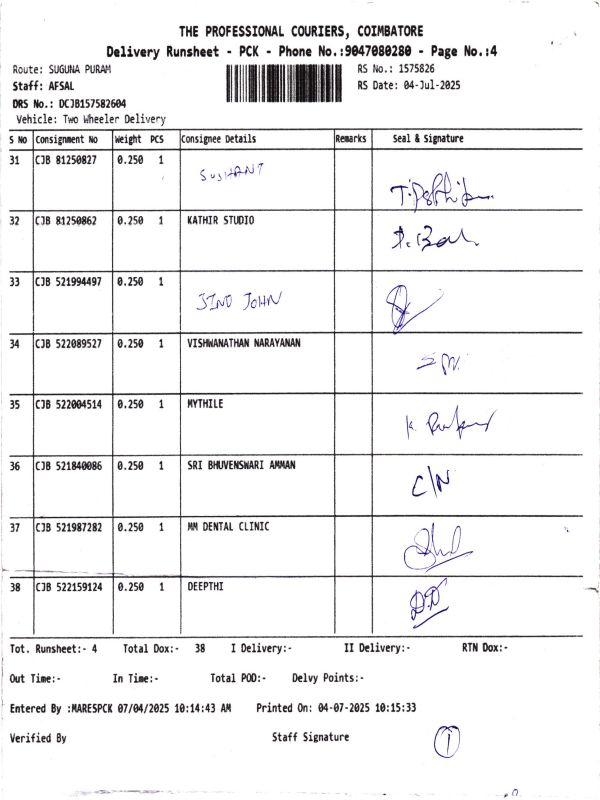 THE PROFESSIONAL COURIERS, COIMBATORE
Delivery Runsheet - PCK - Phone No.:9047080280 - Page No.:4
Route: SUGUNA PURAM RS No.: 1575826
Staff: AFSAL RS Date: 04-Jul-2025
DRS No.: DCJB157582604
Vehicle: Two Wheeler Delivery
S No Consignment No Weight PCS Consignee Details Remarks Seal & Signature
31 CJB 81250827 0.250 1 SUSHANT
32 CJB 81250862 0.250 1 KATHIR STUDIO
33 CJB 521994497 0.250 1 JINO JOHN
34 CJB 522089527 0.250 1 VISHWANATHAN NARAYANAN
35 CJB 522004514 0.250 1 MYTHILE
36 CJB 521840086 0.250 1 SRI BHUVENSWARI AMMAN C/N
37 CJB 521987282 0.250 1 MM DENTAL CLINIC
38 CJB 522159124 0.250 1 DEEPTHI D.D
Tot. Runsheet:- 4 Total Dox:- 38 I Delivery:- II Delivery:- RTN Dox:-
Out Time:- In Time:- Total POD:- Delvy Points:-
Entered By :MARESPCK 07/04/2025 10:14:43 AM Printed On: 04-07-2025 10:15:33
Verified By Staff Signature 1